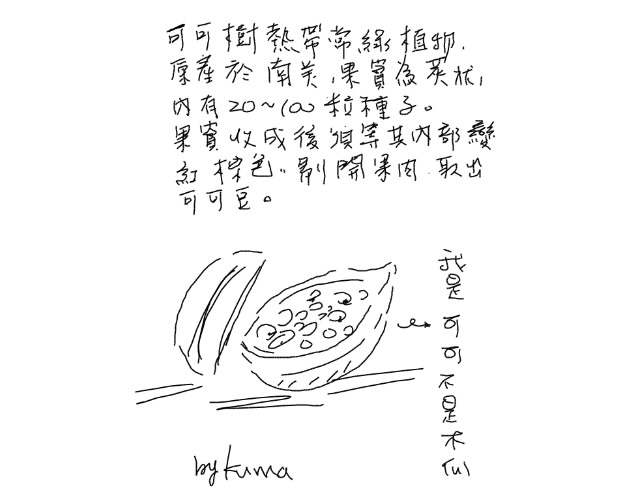 可可樹熱帶常綠植物.
原產於南美,果實為莢狀,
內有20~100粒種子。
果實收成後須等其內部變
紅棕色..剝開果肉.取出
可可豆。
我是可可不是木瓜
by kuma